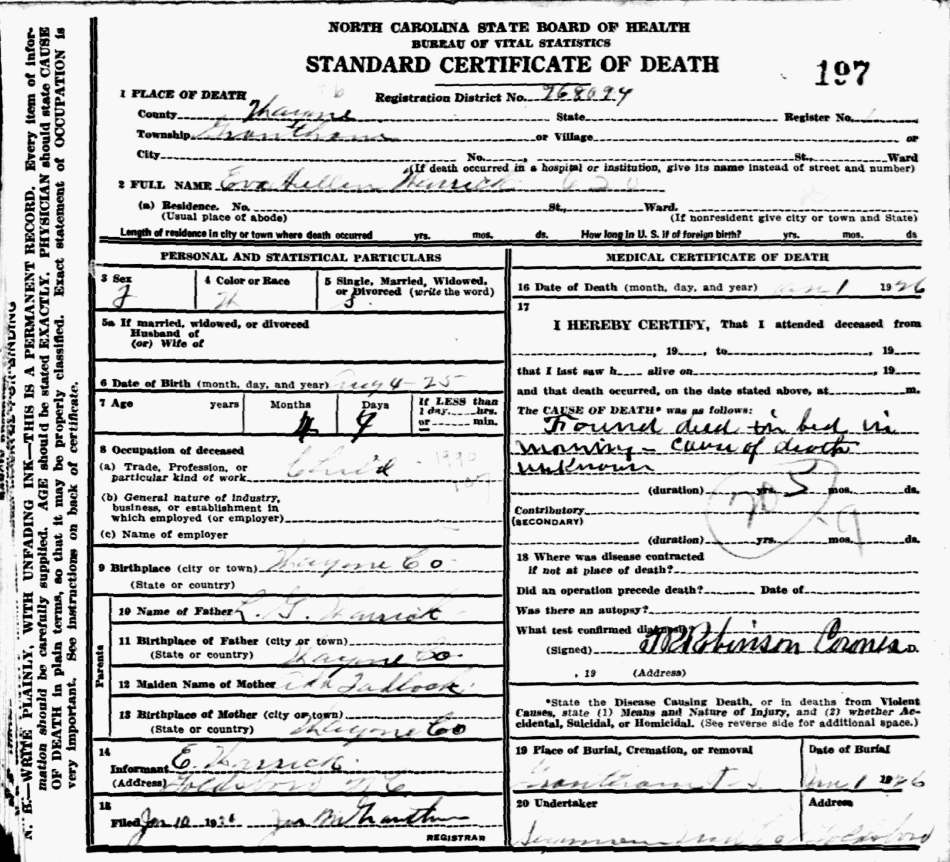 NORTH CAROLINA STATE BOARD OF HEALTH
BUREAU OF VITAL STATISTICS
STANDARD CERTIFICATE OF DEATH
197
1 PLACE OF DEATH
Registration District No.
County Wayne State Register No.
Township Grantham or Village or
City No. St., Ward
(If death occurred in a hospital or institution, give its name instead of street and number)
2 FULL NAME Eva Hellen
(a) Residence. No. St., Ward.
(Usual place of abode) (If nonresident give city or town and State)
Length of residence in city or town where death occurred yrs. mos. ds. How long in U. S. if of foreign birth? yrs. mos. ds
PERSONAL AND STATISTICAL PARTICULARS
3 Sex 4 Color or Race 5 Single, Married, Widowed,
or Divorced (write the word)
F W S
5a If married, widowed, or divorced
Husband of
(or) Wife of
6 Date of Birth (month, day, and year) Aug 4-25
7 Age years Months Days If LESS than
1 day, hrs.
or min.
4 9
8 Occupation of deceased
(a) Trade, Profession, or
particular kind of work Child
(b) General nature of industry,
business, or establishment in
which employed (or employer)
(c) Name of employer
9 Birthplace (city or town) Wayne Co
(State or country)
Parents
10 Name of Father L. G.
11 Birthplace of Father (city or town)
(State or country) Wayne Co.
12 Maiden Name of Mother Tadlock
13 Birthplace of Mother (city or town)
(State or country) Wayne Co
14
Informant E.
(Address) Goldsboro N C
15
Filed Jan 10 1926
REGISTRAR
MEDICAL CERTIFICATE OF DEATH
16 Date of Death (month, day, and year) Jan 1 1926
17
I HEREBY CERTIFY, That I attended deceased from
, 19 , to , 19
that I last saw h alive on , 19
and that death occurred, on the date stated above, at m.
The CAUSE OF DEATH* was as follows:
Found dead in bed in
morning - cause of death
unknown
(duration) yrs. mos. ds.
205
Contributory
(SECONDARY)
9
(duration) yrs. mos. ds.
18 Where was disease contracted
if not at place of death?
Did an operation precede death? Date of
Was there an autopsy?
What test confirmed diagnosis
(Signed) Robinson Coroner D.
, 19 (Address)
*State the Disease Causing Death, or in deaths from Violent
Causes, state (1) Means and Nature of Injury, and (2) whether Ac-
cidental, Suicidal, or Homicidal. (See reverse side for additional space.)
19 Place of Burial, Cremation, or removal Date of Burial
Grantham Jan 1 1926
20 Undertaker Address
Goldsboro
N. B.—WRITE PLAINLY, WITH UNFADING INK—THIS IS A PERMANENT RECORD. Every item of infor-
mation should be carefully supplied. AGE should be stated EXACTLY. PHYSICIAN should state CAUSE
OF DEATH in plain terms, so that it may be properly classified. Exact statement of OCCUPATION is
very important. See instructions on back of certificate.